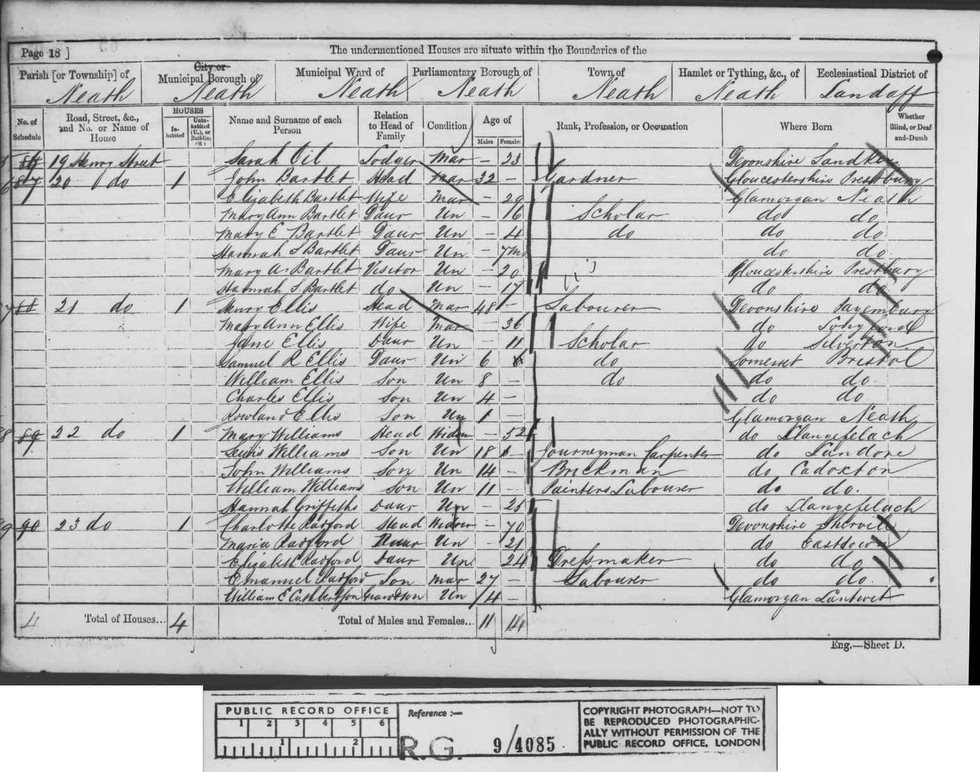 Page 18 ]
The undermentioned Houses are situate within the Boundaries of the
Parish [or Township] of Neath
City or Municipal Borough of Neath
Municipal Ward of Neath
Parliamentary Borough of Neath
Town of Neath
Hamlet or Tything, &c., of Neath
Ecclesiastical District of Landaff
No. of Schedule
Road, Street, &c., and No. or Name of House
HOUSES
Inhabited
Uninhabited (U.), or Building (B.)
Name and Surname of each Person
Relation to Head of Family
Condition
Age of
Males
Females
Rank, Profession, or Occupation
Where Born
Whether Blind, or Deaf-and-Dumb
19 Henry Street Sarah Lodger Mar – 33 Devonshire
20 do 1 John Bartlet Head Mar 32 – Gardner Gloucestershire Prestbury
Elizabeth Bartlet Wife Mar – 29 Glamorgan Neath
Mary Ann Bartlet Daur Un – 16 Scholar do do
Mary E Bartlet Daur Un – 4 do do do
Hannah S Bartlet Daur Un – 7m do do
Mary A. Bartlet Visitor Un – 20 Gloucestershire Prestbury
Hannah S Bartlet do Un – 17 do do
21 do 1 Henry Ellis Head Mar 48 – Labourer Devonshire
Mary Ann Ellis Wife Mar – 36 do
Jane Ellis Daur Un – 11 Scholar do Silverton
Samuel R Ellis Daur Un 6 do Somerset Bristol
William Ellis Son Un 8 – do do do
Charles Ellis Son Un 4 – do do
Rowland Ellis Son Un 1 – Glamorgan Neath
89 22 do 1 Mary Williams Head Widow – 52 do Llangefelach
Lewis Williams Son Un 18 Journeyman Carpenter do Landore
John Williams Son Un 14 – Brickman do Cadoxton
William Williams Son Un 11 – Painters Labourer do do
Hannah Griffiths Daur Un – 25 do Llangefelach
90 23 do 1 Charlotte Radford Head Widow – 70 Devonshire
Maria Radford Daur Un – 21 do Eastdown
Elizabeth Radford Daur Un – 24 Dressmaker do do
Emanuel Radford Son Mar 27 – Labourer do do
William E Grandson Un 4 – Glamorgan Lantwit
4 Total of Houses... 4 Total of Males and Females... 11 14
Eng.—Sheet D.
PUBLIC RECORD OFFICE
1 2 3 4 5 6
1 2
Reference :—
R.G. 9/4085
COPYRIGHT PHOTOGRAPH—NOT TO
BE REPRODUCED PHOTOGRAPHIC-
ALLY WITHOUT PERMISSION OF THE
PUBLIC RECORD OFFICE, LONDON